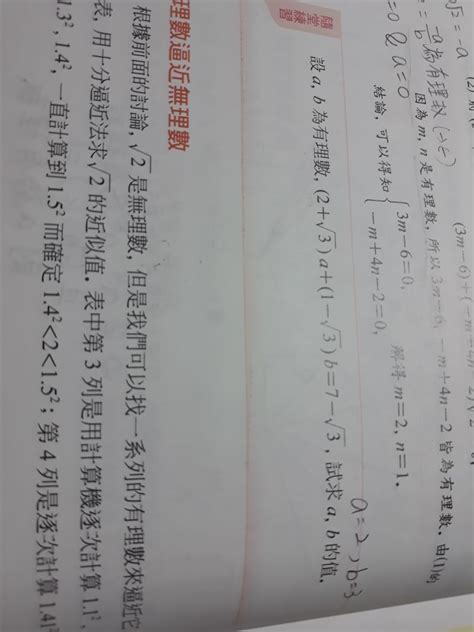 b√2 = -a
(3m-6)+(-m+4n-2)√2
-a/b 為有理數 (→←)
因為 m, n 是有理數, 所以 3m-6, -m+4n-2 皆為有理數, 由(1)的
=0 & a=0
結論, 可以得知 { 3m-6=0, -m+4n-2=0, 解得 m=2, n=1.
隨堂練習
設 a, b 為有理數, (2+√3)a+(1-√3)b=7-√3, 試求 a, b 的值.
a=2, b=3
理數逼近無理數
根據前面的討論, √2 是無理數, 但是我們可以找一系列的有理數來逼近它
表, 用十分逼近法求√2 的近似值. 表中第 3 列是用計算機逐次計算 1.1²,
1.3², 1.4², 一直計算到 1.5² 而確定 1.4²<2<1.5²; 第 4 列是逐次計算 1.41²